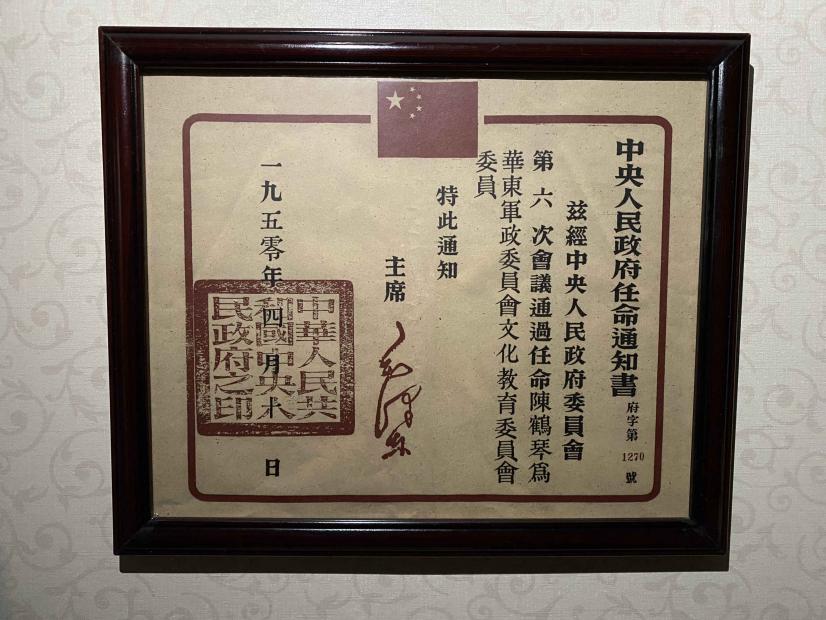 中央人民政府任命通知書
府字第1270號
茲經中央人民政府委員會
第六次會議通過任命陳鶴琴爲
華東軍政委員會文化教育委員會
委員
特此通知
主席
毛澤東
一九五零年四月 日
中華人民共
和國中央人
民政府之印